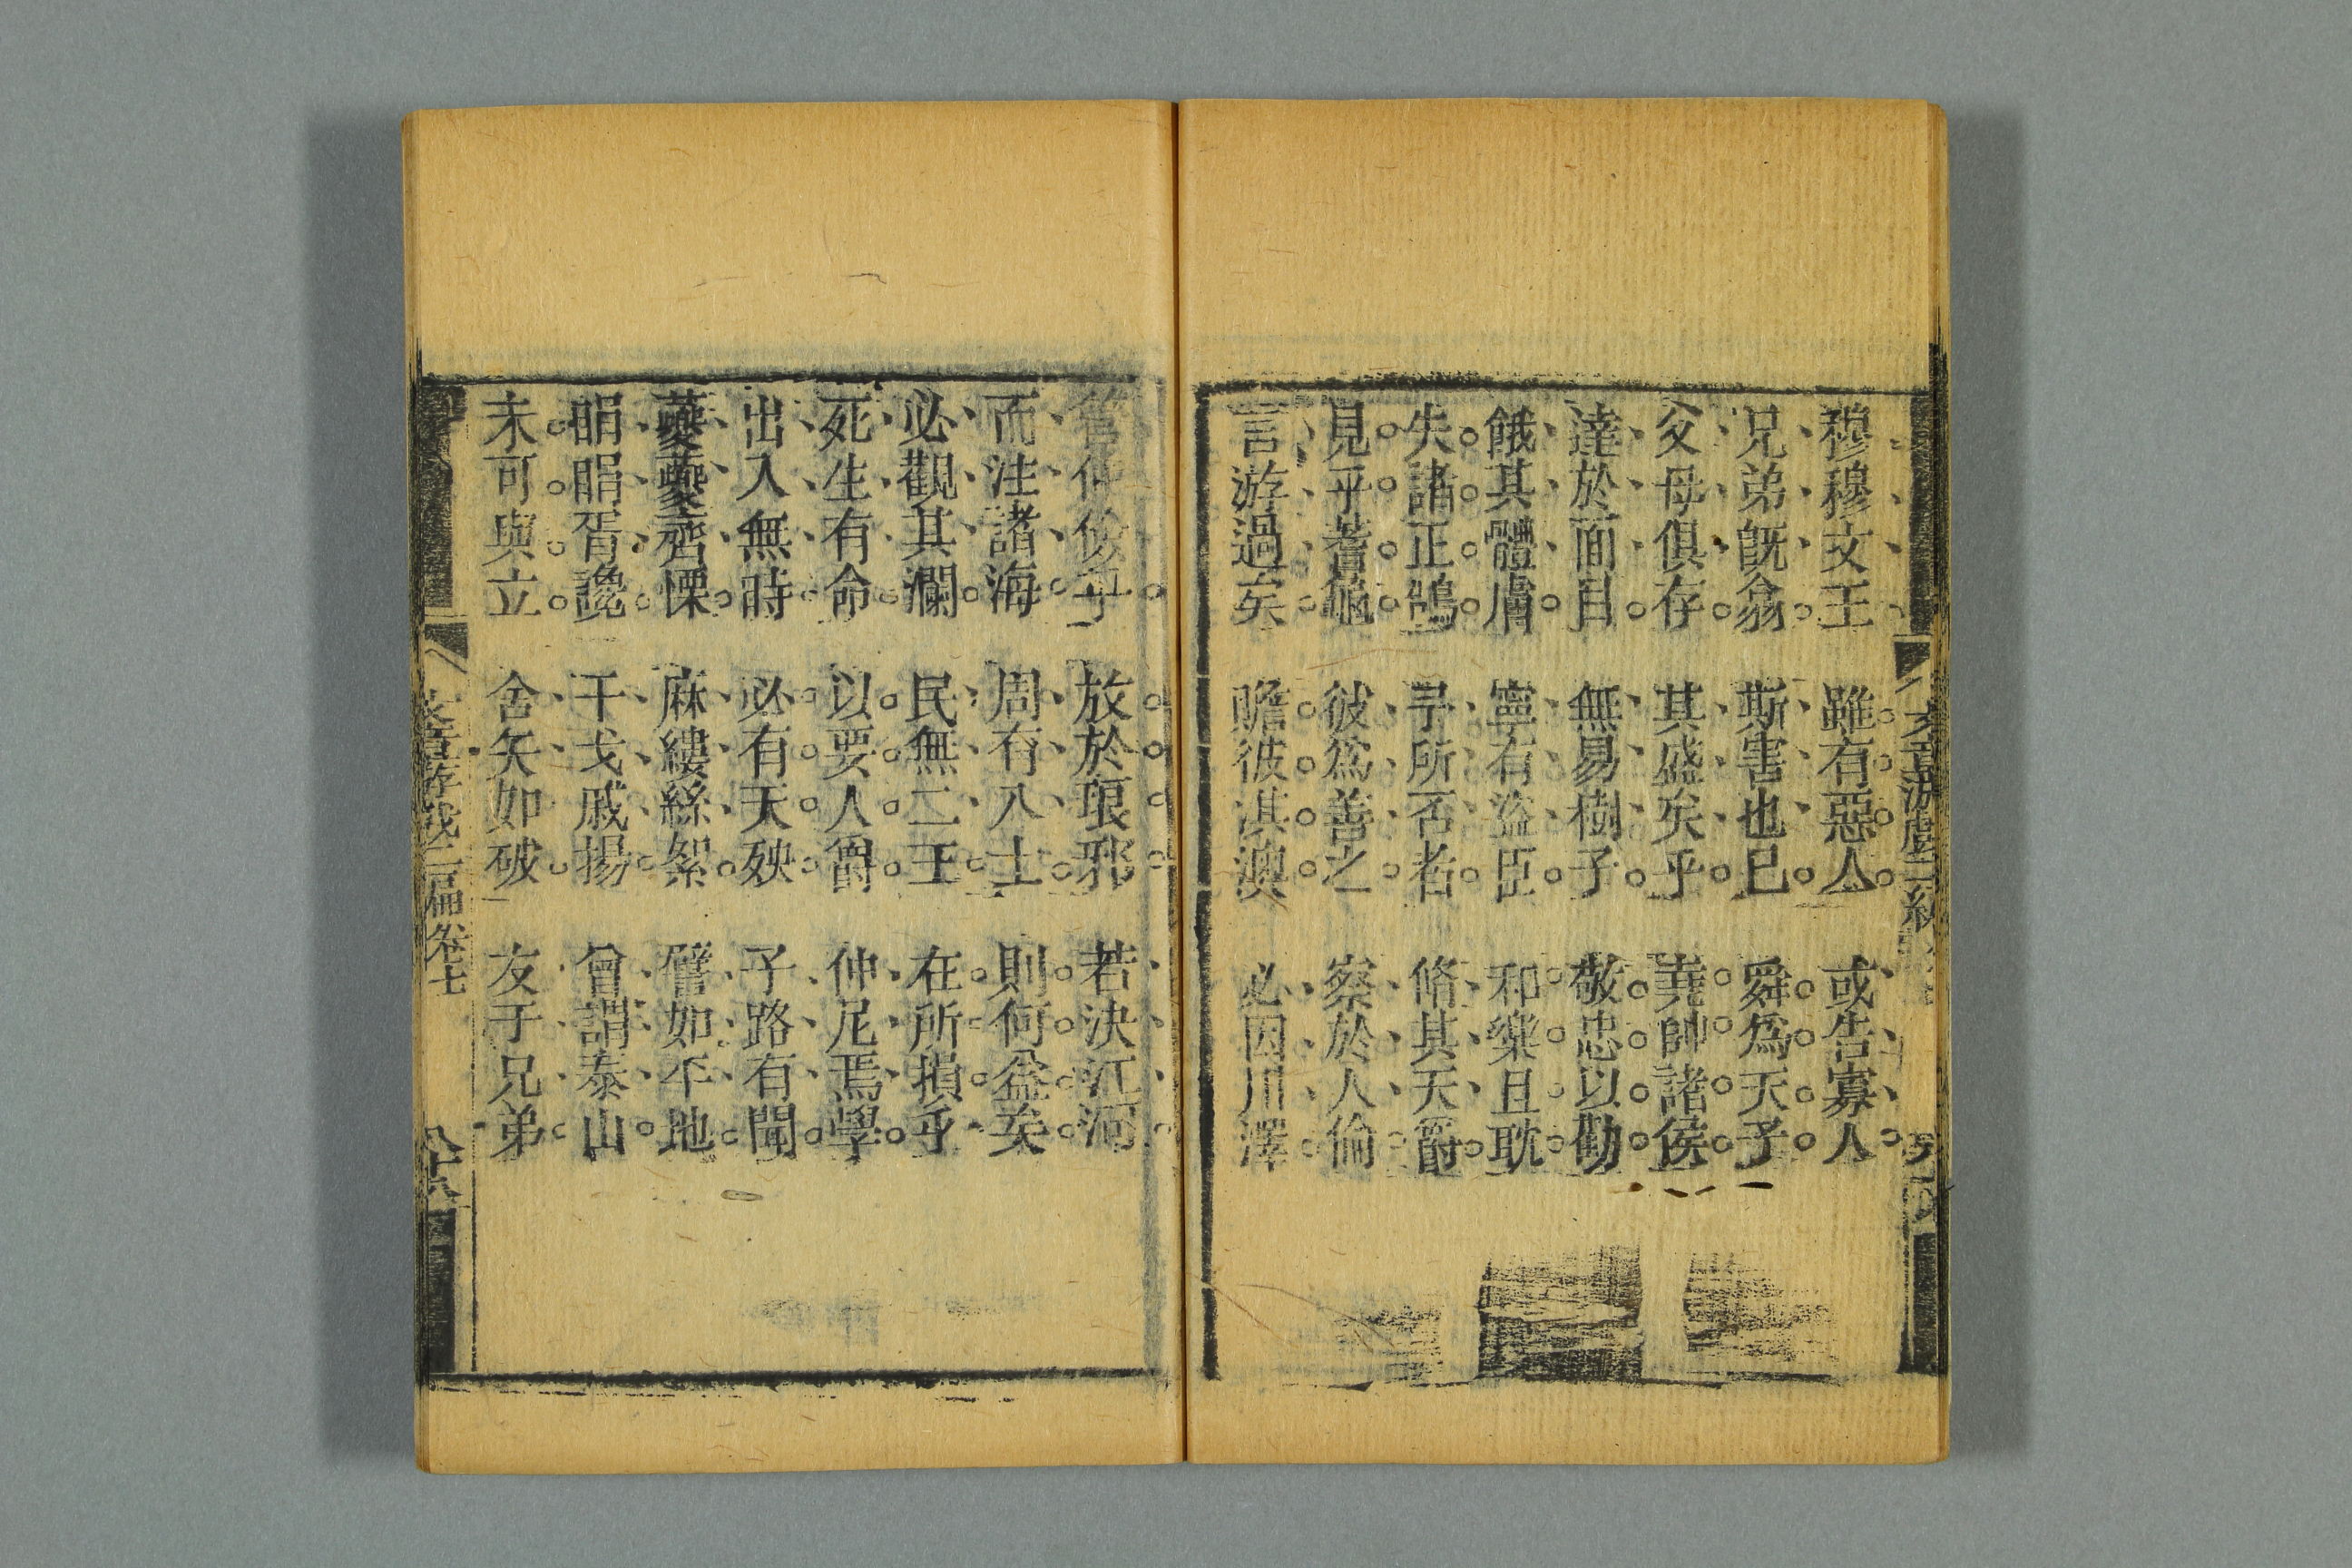 穆穆文王　雖有惡人　或告寡人
兄弟既翕　斯害也已　舜爲天子
父母俱存　其盛矣乎　堯帥諸侯
達於面目　無易樹子　敬忠以勸
餓其體膚　寧有盜臣　和樂且耽
失諸正鵠　予所否者　脩其天爵
見乎蓍龜　彼爲善之　察於人倫
言游過矣　瞻彼淇澳　必因川澤
管仲儉乎　放於琅邪　若決江河
而注諸海　周有八士　則何益矣
必觀其瀾　民無二王　在所損乎
死生有命　以要人爵　仲尼焉學
出入無時　必有天殃　子路有聞
夔夔齊慄　麻縷絲絮　譬如平地
睊睊胥讒　干戈戚揚　曾謂泰山
未可與立　舍矢如破　友于兄弟
文章游戲二編卷七